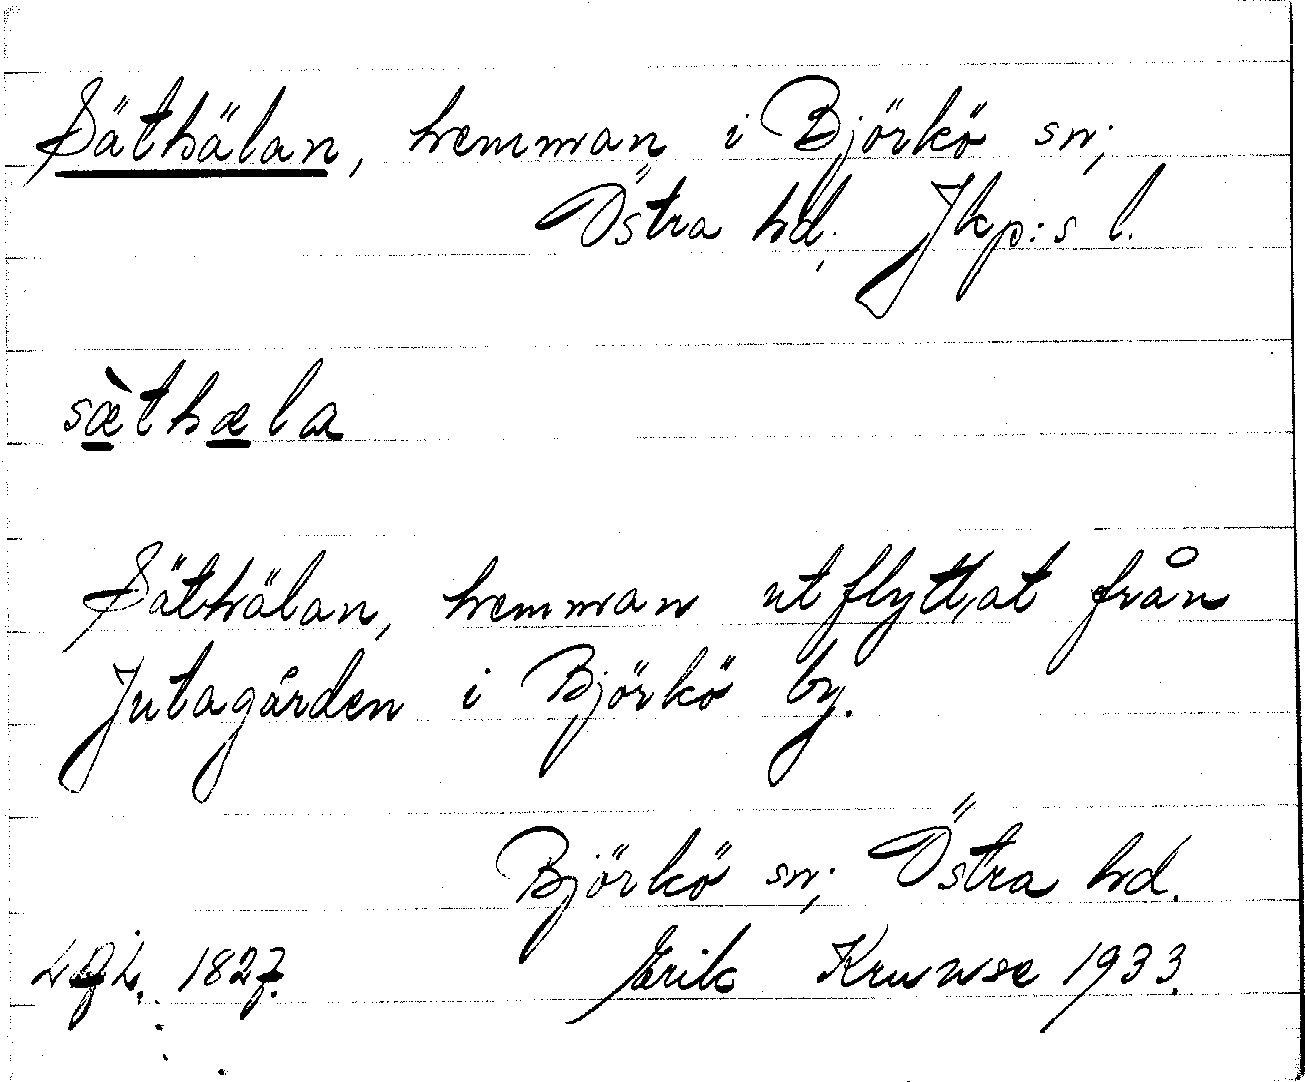 Säthälan, hemman i Björkö sn;
Östra hd; Jkp:s l.
sæ̀thæla
Säthälan, hemman utflyttat från
Jutagården i Björkö by.
Björkö sn; Östra hd.
1827. Erik Kruuse 1933.